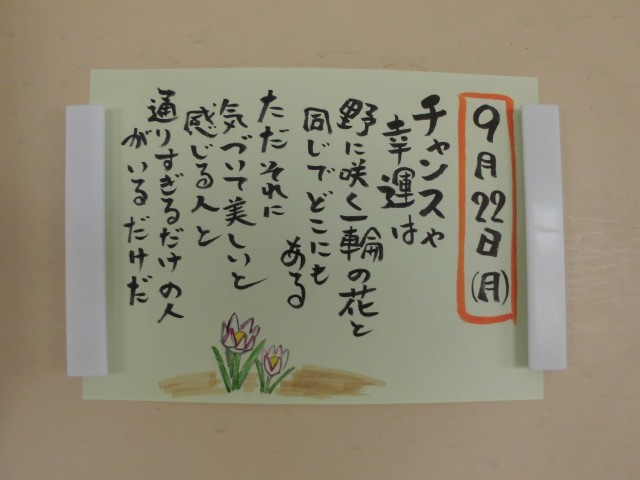 9月22日(月)
チャンスや
幸運は
野に咲く一輪の花と
同じでどこにも
ある
ただそれに
気づいて美しいと
感じる人と
通りすぎるだけの人
がいるだけだ